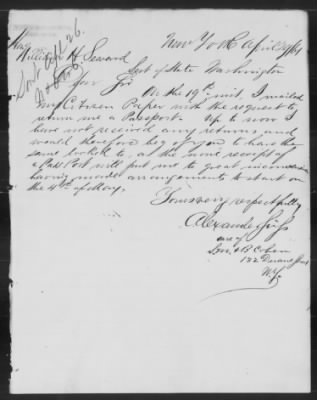 New York April 24/61
Hon
William H. Seward
Sect of State Washington
Sent Apl 26.
Dear Sir
On the 19th inst, I mailed
my Citizen Paper with the request to
return me a Passport. Up to now I
have not received any returns, and
would therefore beg of you to have the
same looked to, as the non receipt of
a Passport will put me to great inconvenience
having made arrangements to start on
the 4th of May.
Yours very respectfully
Alexander
care of
Cohen
132 Duane Street
N.Y.